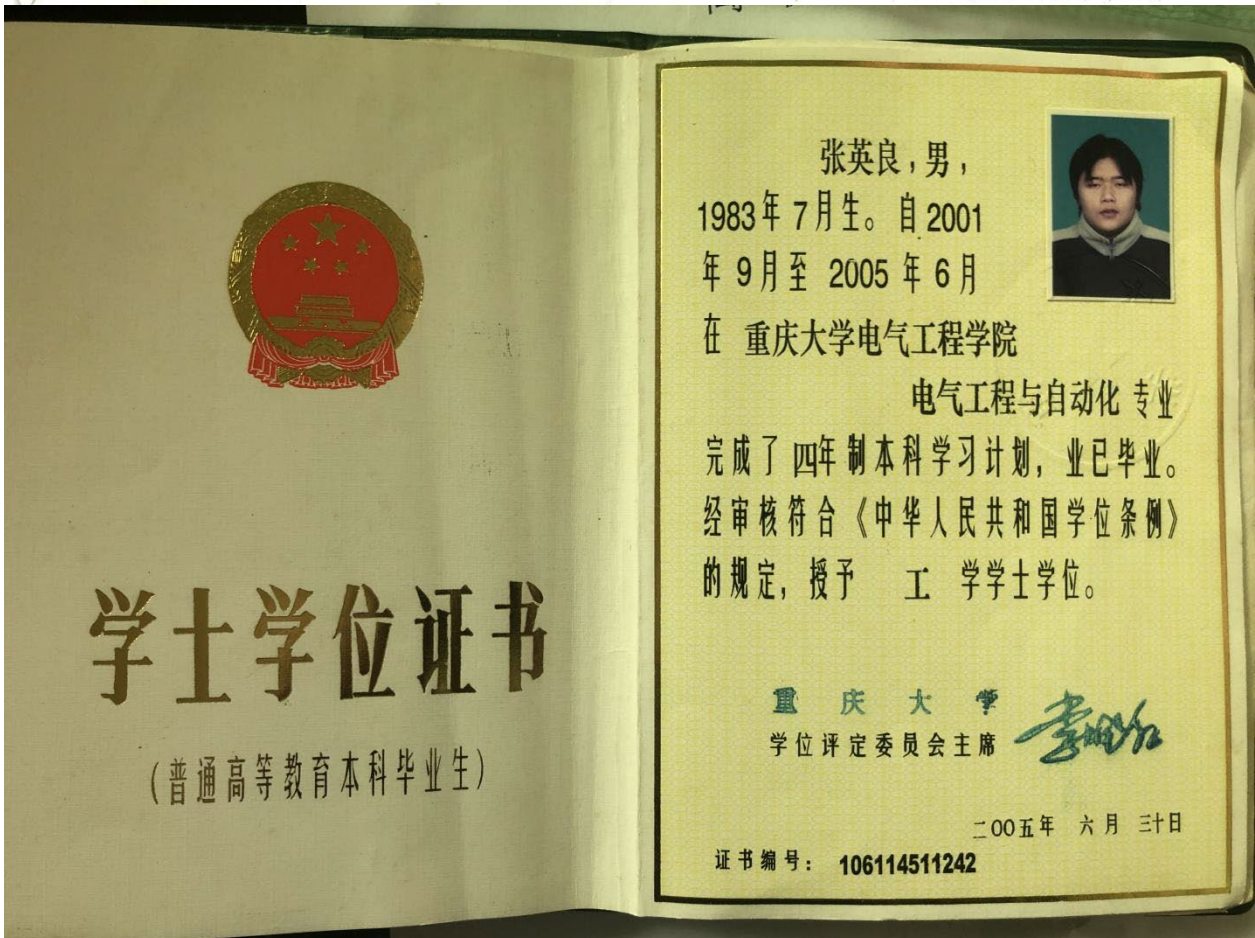 学士学位证书
(普通高等教育本科毕业生)
张英良,男,
1983年 7月生。自 2001
年 9月至 2005 年 6月
在 重庆大学电气工程学院
电气工程与自动化 专业
完成了 四年 制本科学习计划, 业已毕业。
经审核符合《中华人民共和国学位条例》
的规定, 授予 工 学学士学位。
重庆大学
学位评定委员会主席
二00五年 六月 三十日
证书编号: 106114511242